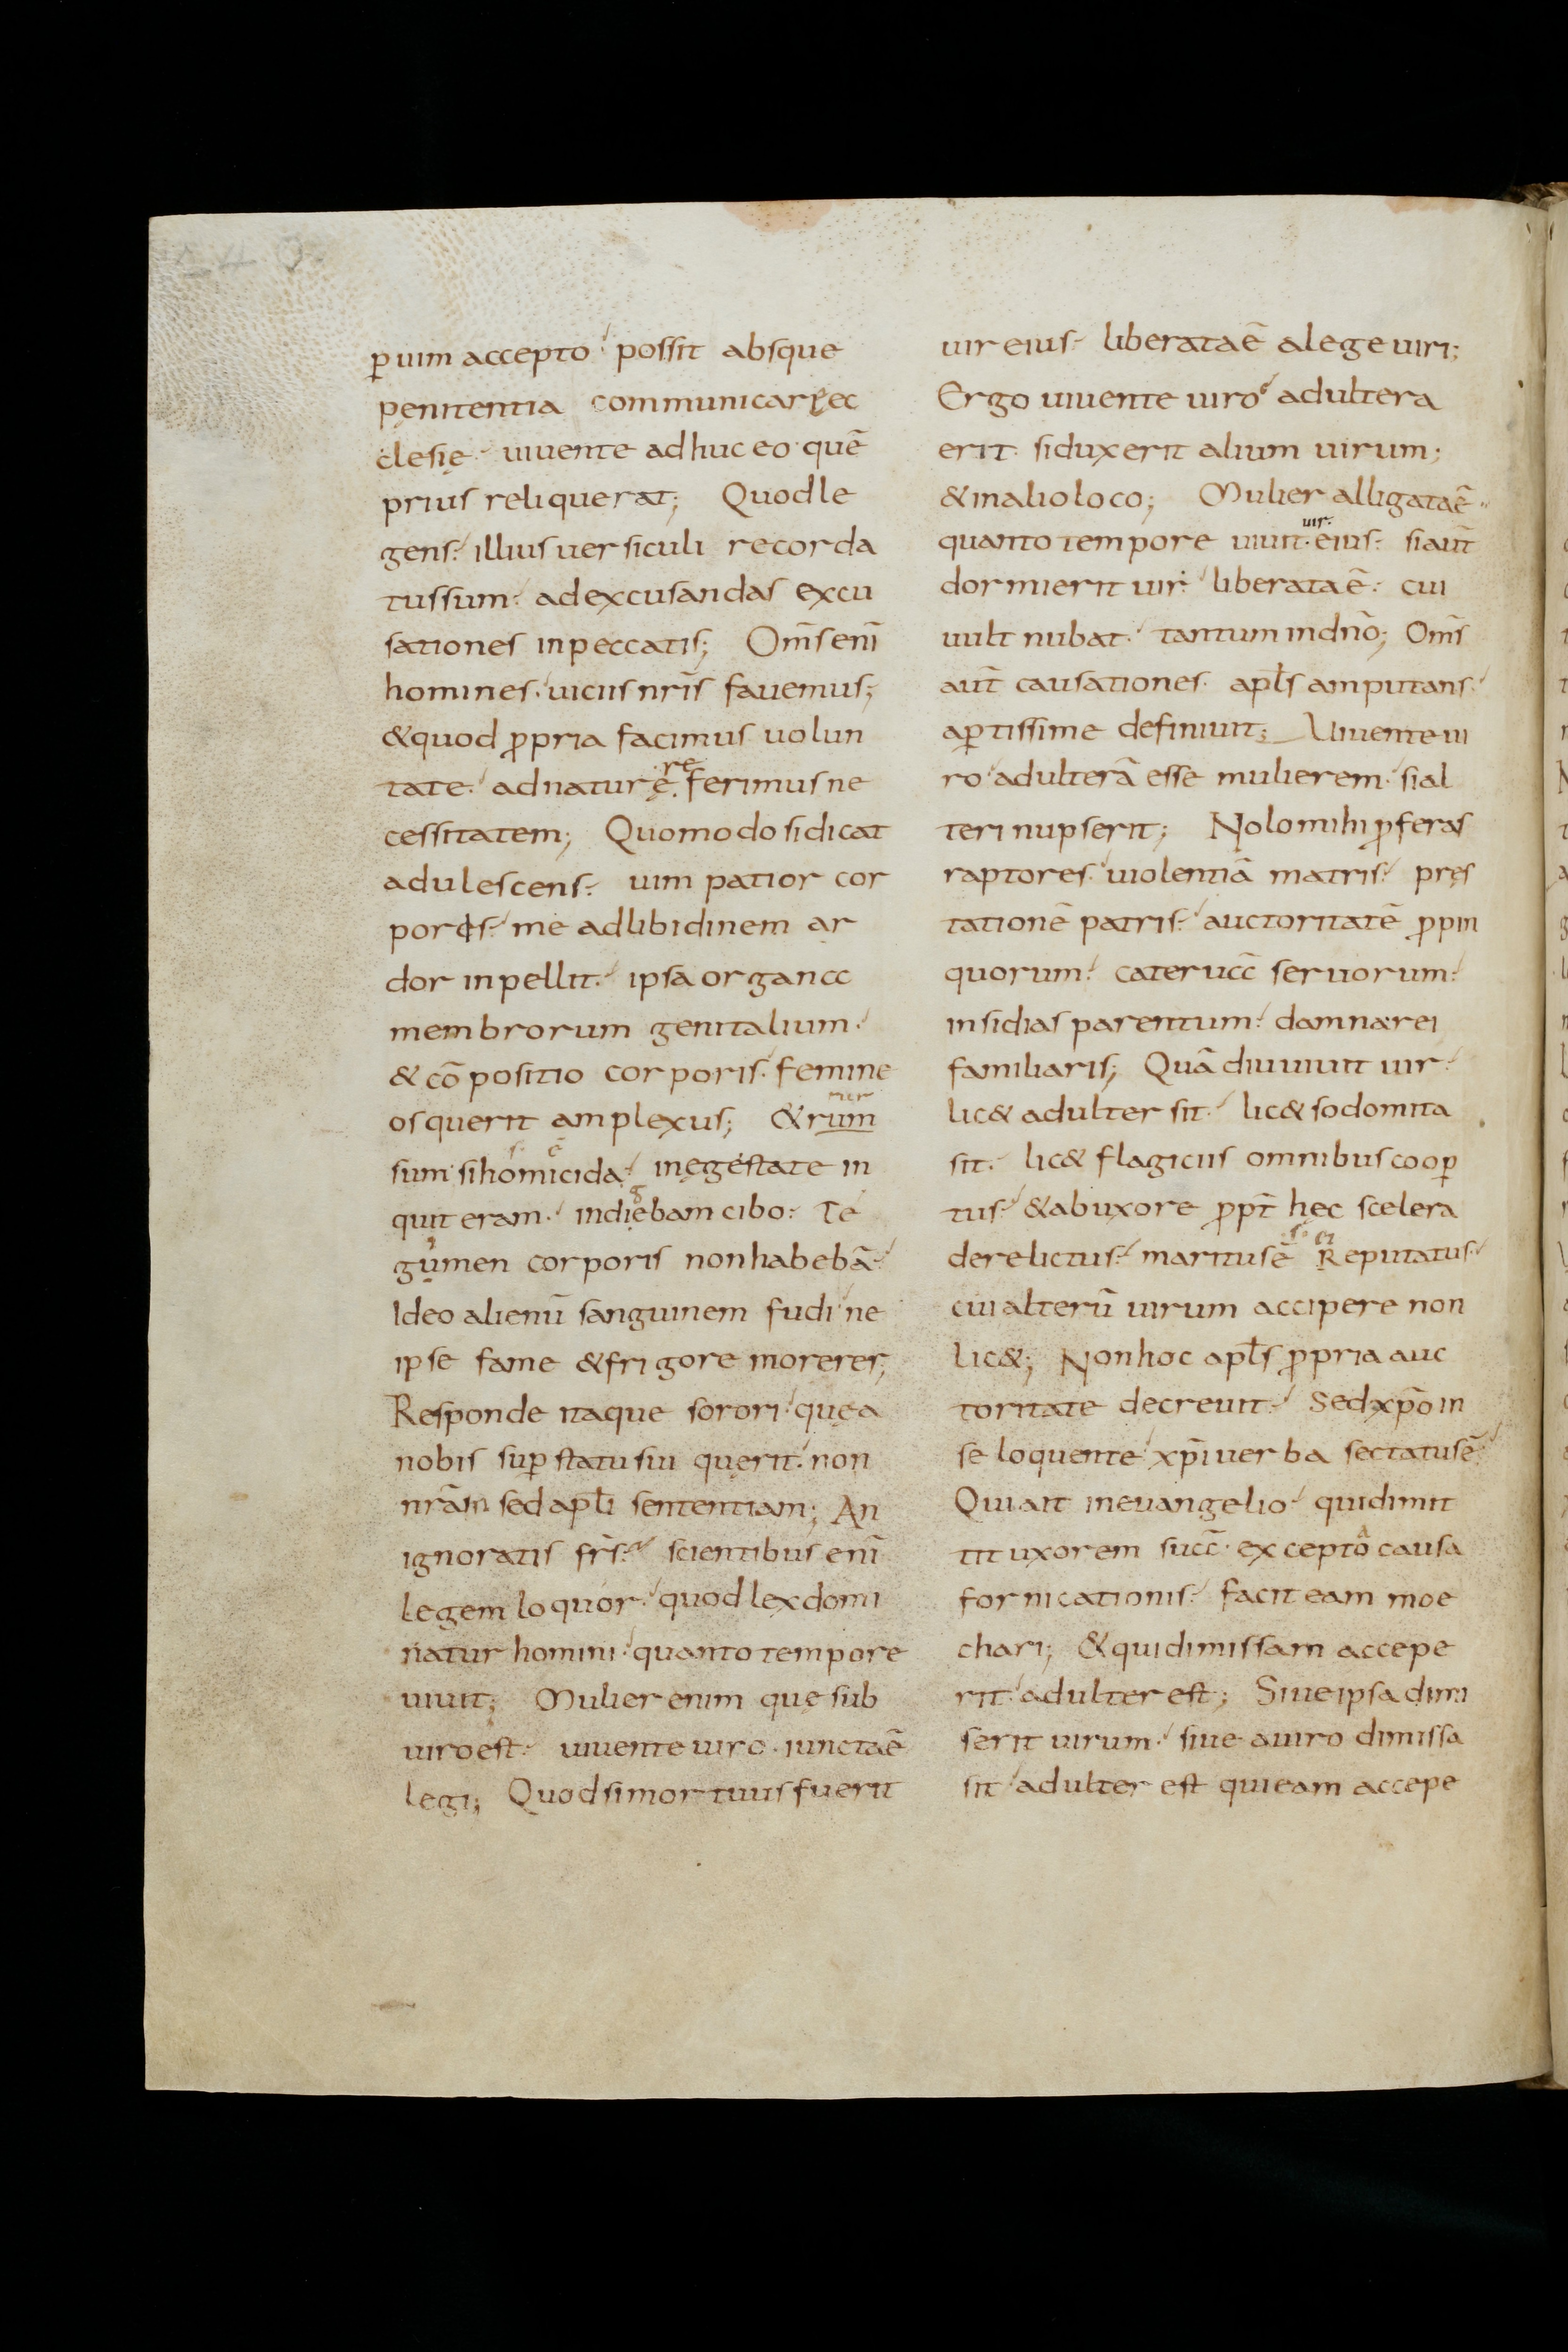 ꝑ uim accepto possit absque
penitentia communicarẹec
clesię uiuente adhuc eo quē
prius reliquerat; Quod le
gens illius uersiculi recorda
tus sum ad excusandas excu
sationes in peccatis; Om̄s enī
homines uiciis nr̄is fauemus;
& quod ꝓpria facimus uolun
tate ad naturę referimus ne
cessitatem; Quomodo si dicat
adulescens uim patior cor
poris me ad libidinem ar
dor inpellit ipsa organa
membrorum genitalium
& cōpositio corporis femine
os querit amplexus; & rum
sum si homicida in egestate in
quit eram indiebam cibo Te
gumen corporis non habebā
Ideo alienū sanguinem fudi ne
ipse fame & frigore morerer;
Responde itaque sorori que a
nobis sup̄ statu sui querit non
nrām sed apl̄i sententiam; An
ignoratis fr̄s scientibus enī
legem loquor quod lex domi
natur homini quanto tempore
uiuit; Mulier enim quę sub
uiro est uiuente uiro iuncta ē
legi; Quod si mortuus fuerit
uir eius liberata ē a lege uiri;
Ergo uiuente uiro adultera
erit si duxerit alium uirum;
& in alio loco; Mulier alligata ē
quanto tempore uiuit uir eius si aut̄
dormierit uir liberata ē cui
uult nubat tantum in dn̄o; Om̄s
aut̄ causationes apl̄s amputans
aꝑtissime definiuit; Uiuente ui
ro adulterā esse mulierem si al
teri nupserit; Nolo mihi ꝓferas
raptores uiolentiā matris pręs
tationē patris auctoritatē ꝓpin
quorum cateruā seruorum
insidias parentum damna rei
familiaris; Quādiu uiuit uir
lic& adulter sit lic& sodomita
sit lic& flagiciis omnibus cooꝑ
tus & ab uxore ꝓpt̄ hęc scelera
derelictus maritus ē Reputatus
cui alterū uirum accipere non
lic&; Non hoc apl̄s ꝓpria auc
toritate decreuit Sed xp̄o in
se loquente xp̄i uerba sectatus ē
Qui ait in euangelio qui dimit
tit uxorem suā excepto causa
fornicationis facit eam moe
chari; & qui dimissam accepe
rit adulter est; Siue ipsa dimi
serit uirum siue a uiro dimissa
sit adulter est qui eam accepe